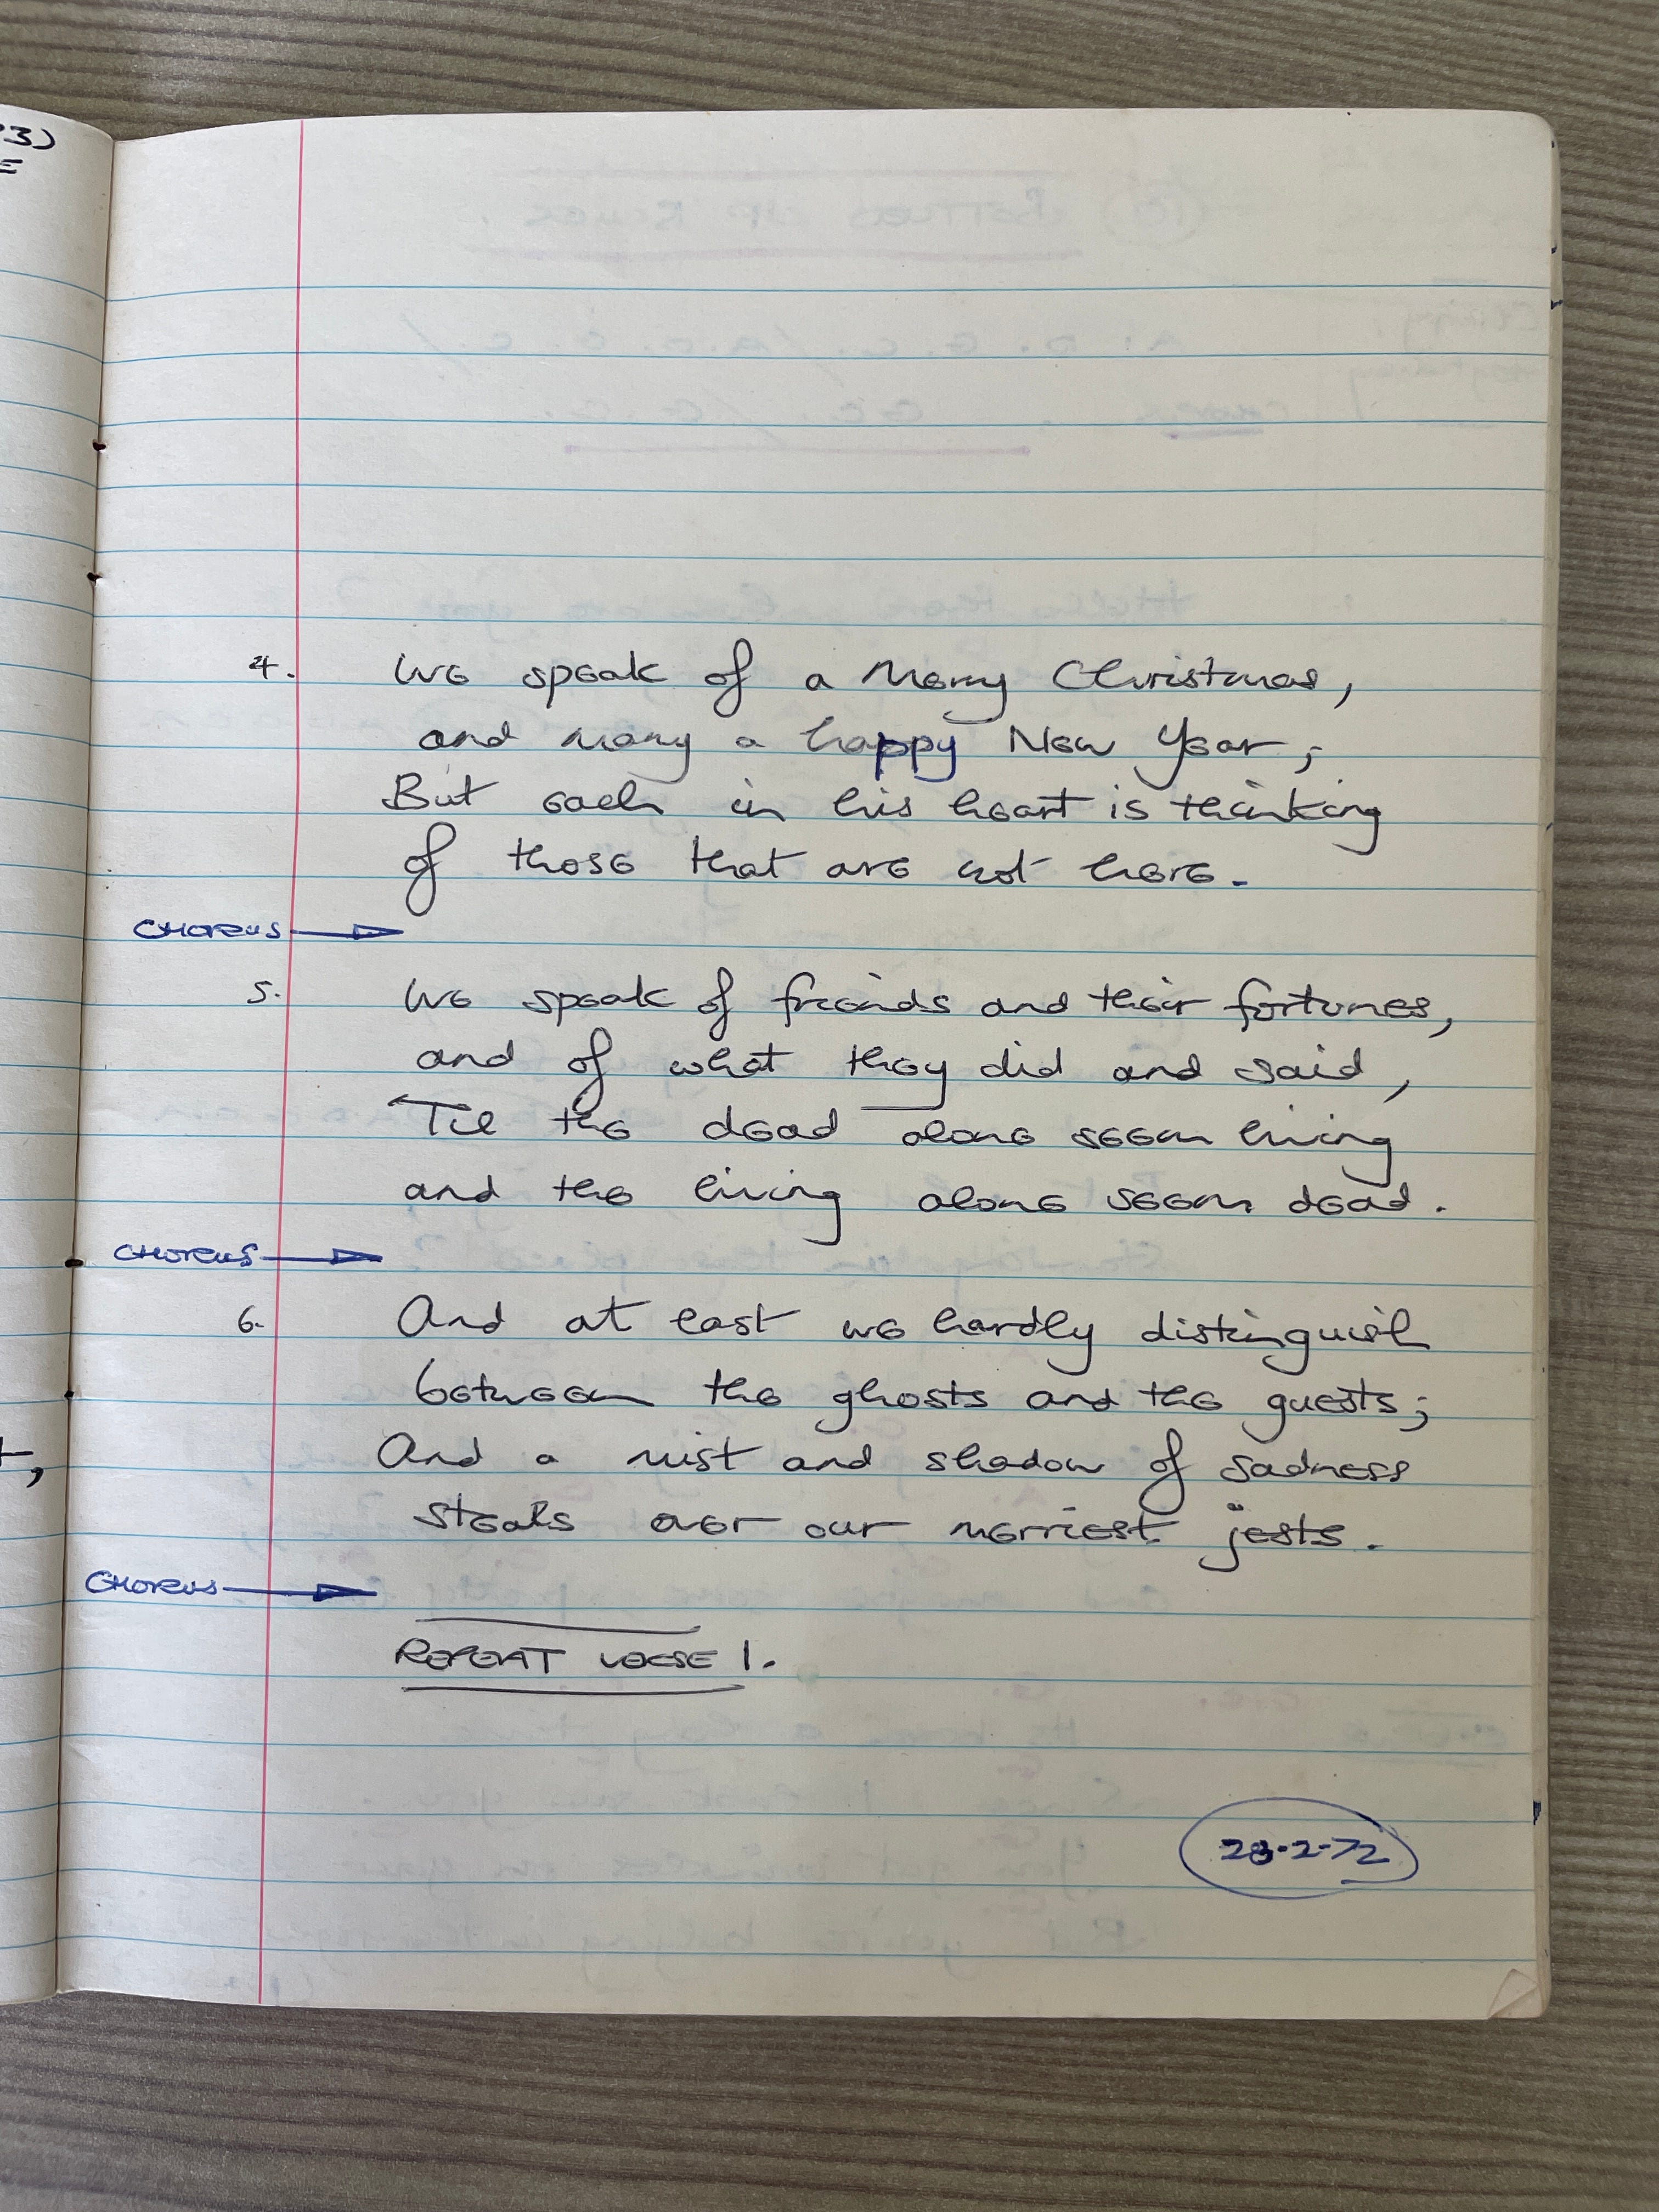 3)
E
4. We speak of a Merry Christmas,
and many a happy New Year;
But each in his heart is thinking
of those that are not here.
CHORUS
5. We speak of friends and their fortunes,
and of what they did and said,
Til the dead alone seem living
and the living alone seem dead.
CHORUS
6. And at last we hardly distinguish
between the ghosts and the guests;
And a mist and shadow of sadness
steals over our merriest jests.
CHORUS
REPEAT VERSE 1.
28-2-72